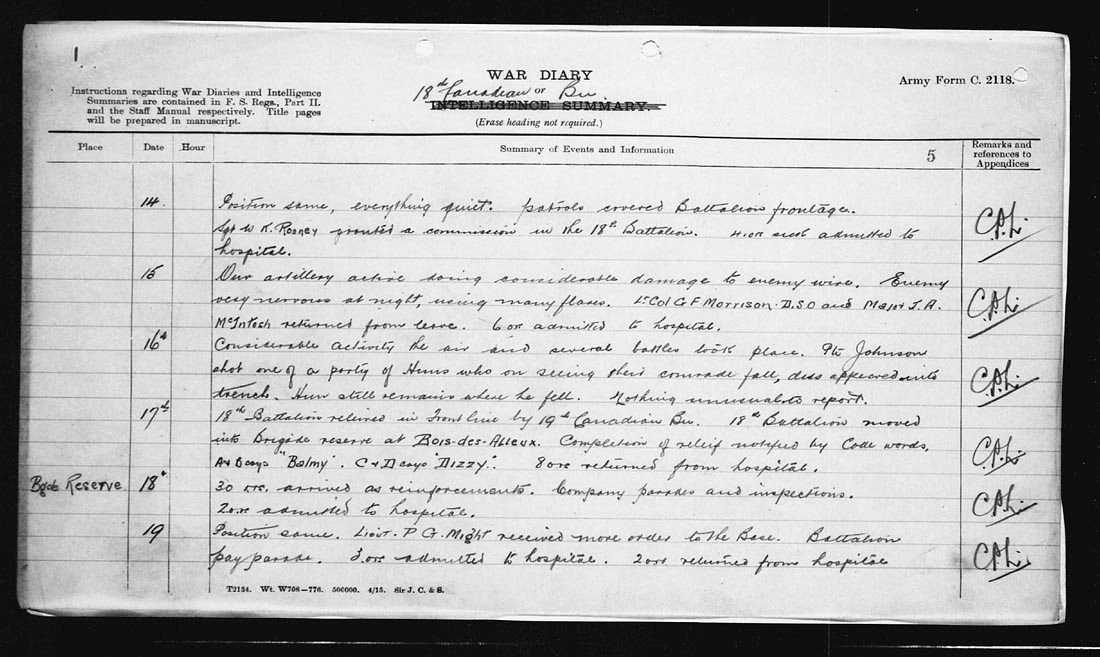 1
WAR DIARY
Army Form C. 2118.
18th Canadian or Bn
INTELLIGENCE SUMMARY.
(Erase heading not required.)
Instructions regarding War Diaries and Intelligence
Summaries are contained in F. S. Regs., Part II.
and the Staff Manual respectively. Title pages
will be prepared in manuscript.
Place Date Hour Summary of Events and Information 5 Remarks and
references to
Appendices
14. Position same, everything quiet. patrols covered Battalion frontage.
Sgt W K. Rooney granted a commission in the 18th Battalion. 4.or sick admitted to
hospital.
15 Our artillery active doing considerable damage to enemy wire. Enemy
very nervous at night, using many flares. Lt Col G F Morrison. D.S.O and Major J. A.
McIntosh returned from leave. 6 or admitted to hospital.
16th Considerable activity the air and several battles took place. Pte Johnson
shot one of a party of Huns who on seeing their comrade fall, disappeared into
trench. Hun still remains where he fell. Nothing unusual to report.
17th 18th Battalion relieved in Front line by 19th Canadian Bn. 18th Battalion moved
into Brigade reserve at Bois-des-Alleux. Completion of relief notified by Code words,
A & B coys "Balmy". C & D coys "DIZZY". 8 ors returned from hospital.
Bgde Reserve 18th 30 ors. arrived as reinforcements. Company parades and inspections.
2 ors admitted to hospital.
19 Position same. Lieut. P G. Might received move order to the Base. Battalion
pay parade. 3.ors admitted to hospital. 2 ors returned from hospital
T2134. Wt. W708-776. 500000. 4/15. Sir J. C. & S.